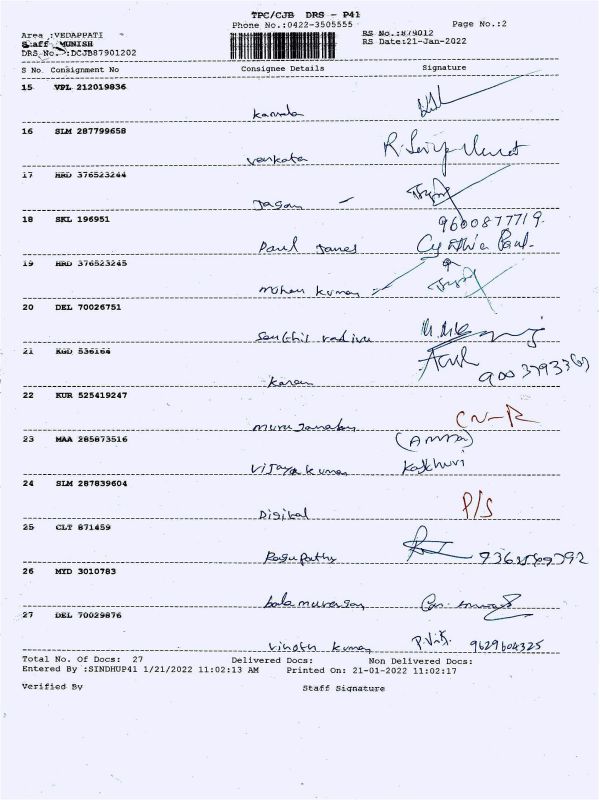 TPC/CJB DRS - P41
Phone No.:0422-3505555 Page No.:2
Area :VEDAPPATI RS No.:879012
Staff :MUNISH RS Date:21-Jan-2022
DRS No. :DCJB87901202
S No Consignment No Consignee Details Signature
15 VPL 212019836
Kamala
16 SLM 287799658
Venkata
17 HRD 376523244
Jagan
18 SKL 196951 9600877719.
Paul James Cynthia Paul.
19 HRD 376523245
mohan kumar
20 DEL 70026751
Senthil vadivu
21 KGD 536164
Karan
22 KUR 525419247
CN-R
23 MAA 285873516 (Amma)
Vijaya kumar
24 SLM 287839604
Digital P/S
25 CLT 871459
Ragupathy
26 MYD 3010783
balamurugan
27 DEL 70029876
Vinoth kumar 9629604325
Total No. Of Docs: 27 Delivered Docs: Non Delivered Docs:
Entered By :SINDHUP41 1/21/2022 11:02:13 AM Printed On: 21-01-2022 11:02:17
Verified By Staff Signature